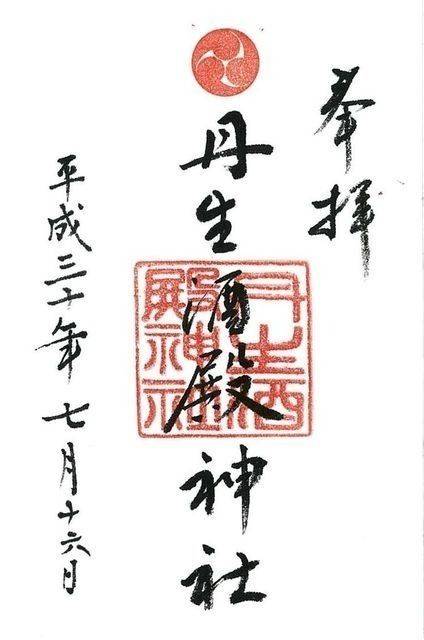 奉拝
丹生酒殿神社
丹生酒
殿神社
平成三十年七月十六日